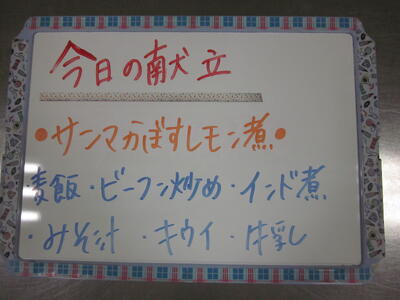 今日の献立
•サンマかぼすレモン煮•
麦飯・ビーフン炒め・インド煮
・みそ汁 ・キウイ ・牛乳